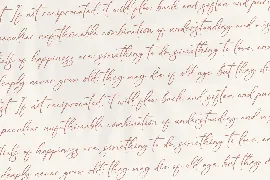 st. If not reciprocated, it will flow back and soften and puri
peculiar unfathomable combination of understanding and mis
tials of happiness are: something to do, something to love, an
deeply never grow old; they may die of old age, but they di
st. If not reciprocated, it will flow back and soften and puri
peculiar unfathomable combination of understanding and mi
tials of happiness are: something to do, something to love, an
deeply never grow old; they may die of old age, but they d